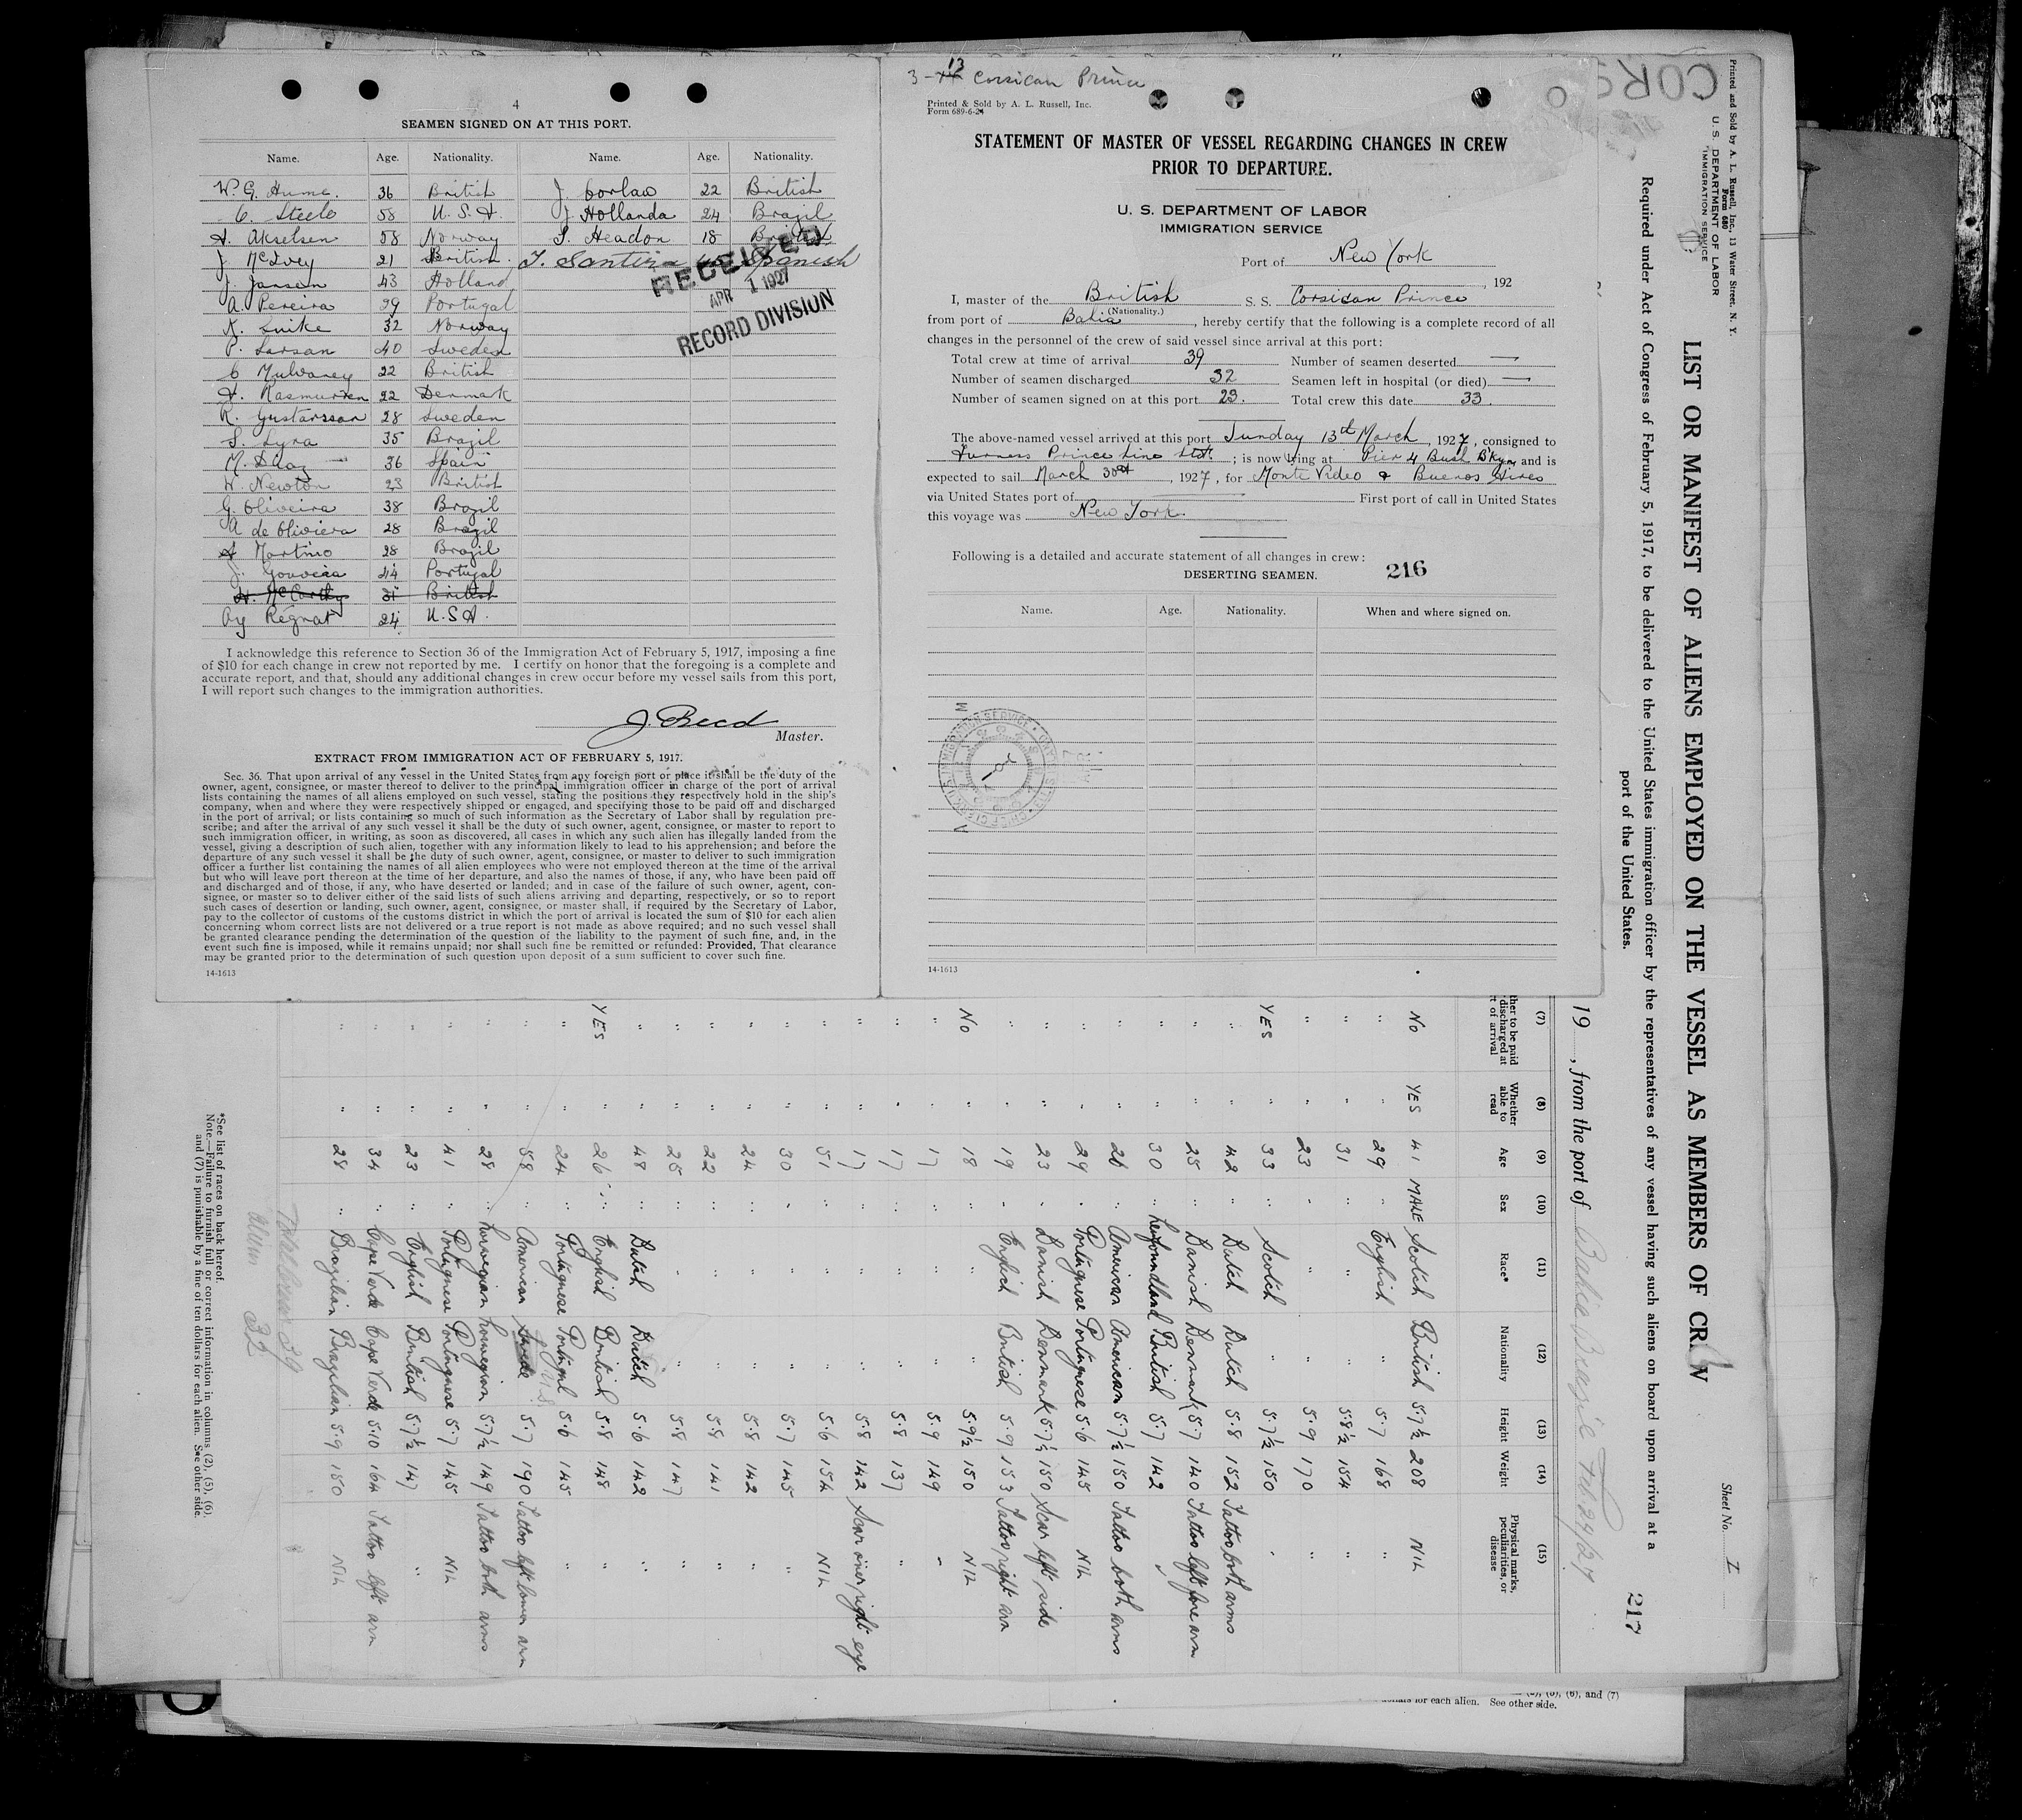 4
SEAMEN SIGNED ON AT THIS PORT.
Name. Age. Nationality. Name. Age. Nationality.
W. G. Hume. 36 British J. Corlao 22 British
C. Steele 58 U.S.A. J. Hollanda 24 Brazil
A. Akselsen 58 Norway S. Headon 18 British
J. McIvey 21 British. T. Santina Spanish
J. Jansen 43 Holland
A. Pereira 29 Portugal
K. Suike 32 Norway
P. Larsan 40 Sweden
C Mulvaney 22 British
A. Rasmussen 22 Denmark
R. Gustarsson 28 Sweden
S. Lyra 35 Brazil
M. Diaz 36 Spain
W. Newton 23 British
G. Oliveira 38 Brazil
A de Oliviera 28 Brazil
A Martino 28 Brazil
J. Gouveia 44 Portugal
H. McCarthy 31 British
Ay Regnat 24 U.S.A.
RECEIVED
APR 1 1927
RECORD DIVISION
I acknowledge this reference to Section 36 of the Immigration Act of February 5, 1917, imposing a fine
of $10 for each change in crew not reported by me. I certify on honor that the foregoing is a complete and
accurate report, and that, should any additional changes in crew occur before my vessel sails from this port,
I will report such changes to the immigration authorities.
J. Reed
Master.
EXTRACT FROM IMMIGRATION ACT OF FEBRUARY 5, 1917.
Sec. 36. That upon arrival of any vessel in the United States from any foreign port or place it shall be the duty of the
owner, agent, consignee, or master thereof to deliver to the principal immigration officer in charge of the port of arrival
lists containing the names of all aliens employed on such vessel, stating the positions they respectively hold in the ship's
company, when and where they were respectively shipped or engaged, and specifying those to be paid off and discharged
in the port of arrival; or lists containing so much of such information as the Secretary of Labor shall by regulation pre-
scribe; and after the arrival of any such vessel it shall be the duty of such owner, agent, consignee, or master to report to
such immigration officer, in writing, as soon as discovered, all cases in which any such alien has illegally landed from the
vessel, giving a description of such alien, together with any information likely to lead to his apprehension; and before the
departure of any such vessel it shall be the duty of such owner, agent, consignee, or master to deliver to such immigration
officer a further list containing the names of all alien employees who were not employed thereon at the time of the arrival
but who will leave port thereon at the time of her departure, and also the names of those, if any, who have been paid off
and discharged and of those, if any, who have deserted or landed; and in case of the failure of such owner, agent, con-
signee, or master so to deliver either of the said lists of such aliens arriving and departing, respectively, or so to report
such cases of desertion or landing, such owner, agent, consignee, or master, shall, if required by the Secretary of Labor,
pay to the collector of customs of the customs district in which the port of arrival is located the sum of $10 for each alien
concerning whom correct lists are not delivered or a true report is not made as above required; and no such vessel shall
be granted clearance pending the determination of the question of the liability to the payment of such fine, and, in the
event such fine is imposed, while it remains unpaid; nor shall such fine be remitted or refunded: Provided, That clearance
may be granted prior to the determination of such question upon deposit of a sum sufficient to cover such fine.
14-1613
3- 13 Corsican Prince
Printed & Sold by A. L. Russell, Inc.
Form 689-6-24
STATEMENT OF MASTER OF VESSEL REGARDING CHANGES IN CREW
PRIOR TO DEPARTURE.
U. S. DEPARTMENT OF LABOR
IMMIGRATION SERVICE
Port of New York
, 192
I, master of the British S. S. Corsican Prince
(Nationality.)
from port of Bahia, hereby certify that the following is a complete record of all
changes in the personnel of the crew of said vessel since arrival at this port:
Total crew at time of arrival 39 Number of seamen deserted —
Number of seamen discharged 32 Seamen left in hospital (or died) —
Number of seamen signed on at this port 23. Total crew this date 33.
The above-named vessel arrived at this port Sunday 13th March, 1927, consigned to
Furness Prince Line Ltd.; is now lying at Pier 4 Bush B'kyn and is
expected to sail March 30th, 1927, for Monte Video & Buenos Aires
via United States port of First port of call in United States
this voyage was New York.
Following is a detailed and accurate statement of all changes in crew:
DESERTING SEAMEN.
216
Name. Age. Nationality. When and where signed on.
14-1613
Printed and Sold by A. L. Russell, Inc., 13 Water Street, N. Y.
Form 680
U. S. DEPARTMENT OF LABOR
IMMIGRATION SERVICE
Sheet No. I
LIST OR MANIFEST OF ALIENS EMPLOYED ON THE VESSEL AS MEMBERS OF CREW
Required under Act of Congress of February 5, 1917, to be delivered to the United States immigration officer by the representatives of any vessel having such aliens on board upon arrival at a
port of the United States.
217
19 , from the port of Bahia Brasil Feb 29/27
(7) (8) (9) (10) (11) (12) (13) (14) (15)
ther to be paid discharged at t of arrival Whether able to read Age Sex Race* Nationality Height Weight Physical marks, peculiarities, or disease
No YES 41 MALE Scotch British 5.7½ 208 NIL
" " 29 " English " 5.7 168 "
" " 31 " " " 5.8½ 154 "
" " 23 " " " 5.9 170 "
YES " 33 " Scotch " 5.7½ 150 "
" " 42 " Dutch Dutch 5.8 152 Tattoo both arms
" " 25 " Danish Denmark 5.7 140 Tattoo left fore arm
" " 30 " Newfoundland British 5.7 142 "
" " 26 " American American 5.7½ 150 Tattoo both arms
" " 29 " Portuguese Portuguese 5.6 145 NIL
" " 23 " Danish Denmark 5.7½ 150 Scar left side
" " 19 " English British 5.9 153 Tattoo right arm
No " 18 " " " 5.9½ 150 NIL
" " 17 " " " 5.9 149 "
" " 17 " " " 5.8 137 "
" " 17 " " " 5.8 142 Scar over right eye
" " 51 " " " 5.6 154 NIL
" " 30 " " " 5.7 145 "
" " 24 " " " 5.8 142 "
" " 22 " " " 5.8 141 "
" " 25 " " " 5.8 147 "
" " 48 " Dutch Dutch 5.6 142 "
YES " 26 " English British 5.8 148 "
" " 24 " Portuguese Portugal 5.6 145 "
" " 58 " American 5.7 190 Tattoo left lower arm
" " 28 " Norwegian Norwegian 5.7½ 149 Tattoo both arms
" " 41 " Portuguese Portuguese 5.7 145 NIL
" " 23 " English British 5.7½ 147 "
" " 34 " Cape Verde Cape Verde 5.10 164 Tattoo left arm
" " 28 " Brazilian Brazilian 5.9 180 NIL
Total Crew 39
Alien 32
*See list of races on back hereof.
Note.—Failure to furnish full or correct information in columns (2), (5), (6),
and (7) is punishable by a fine of ten dollars for each alien. See other side.
(5), (6), and (7)
for each alien. See other side.